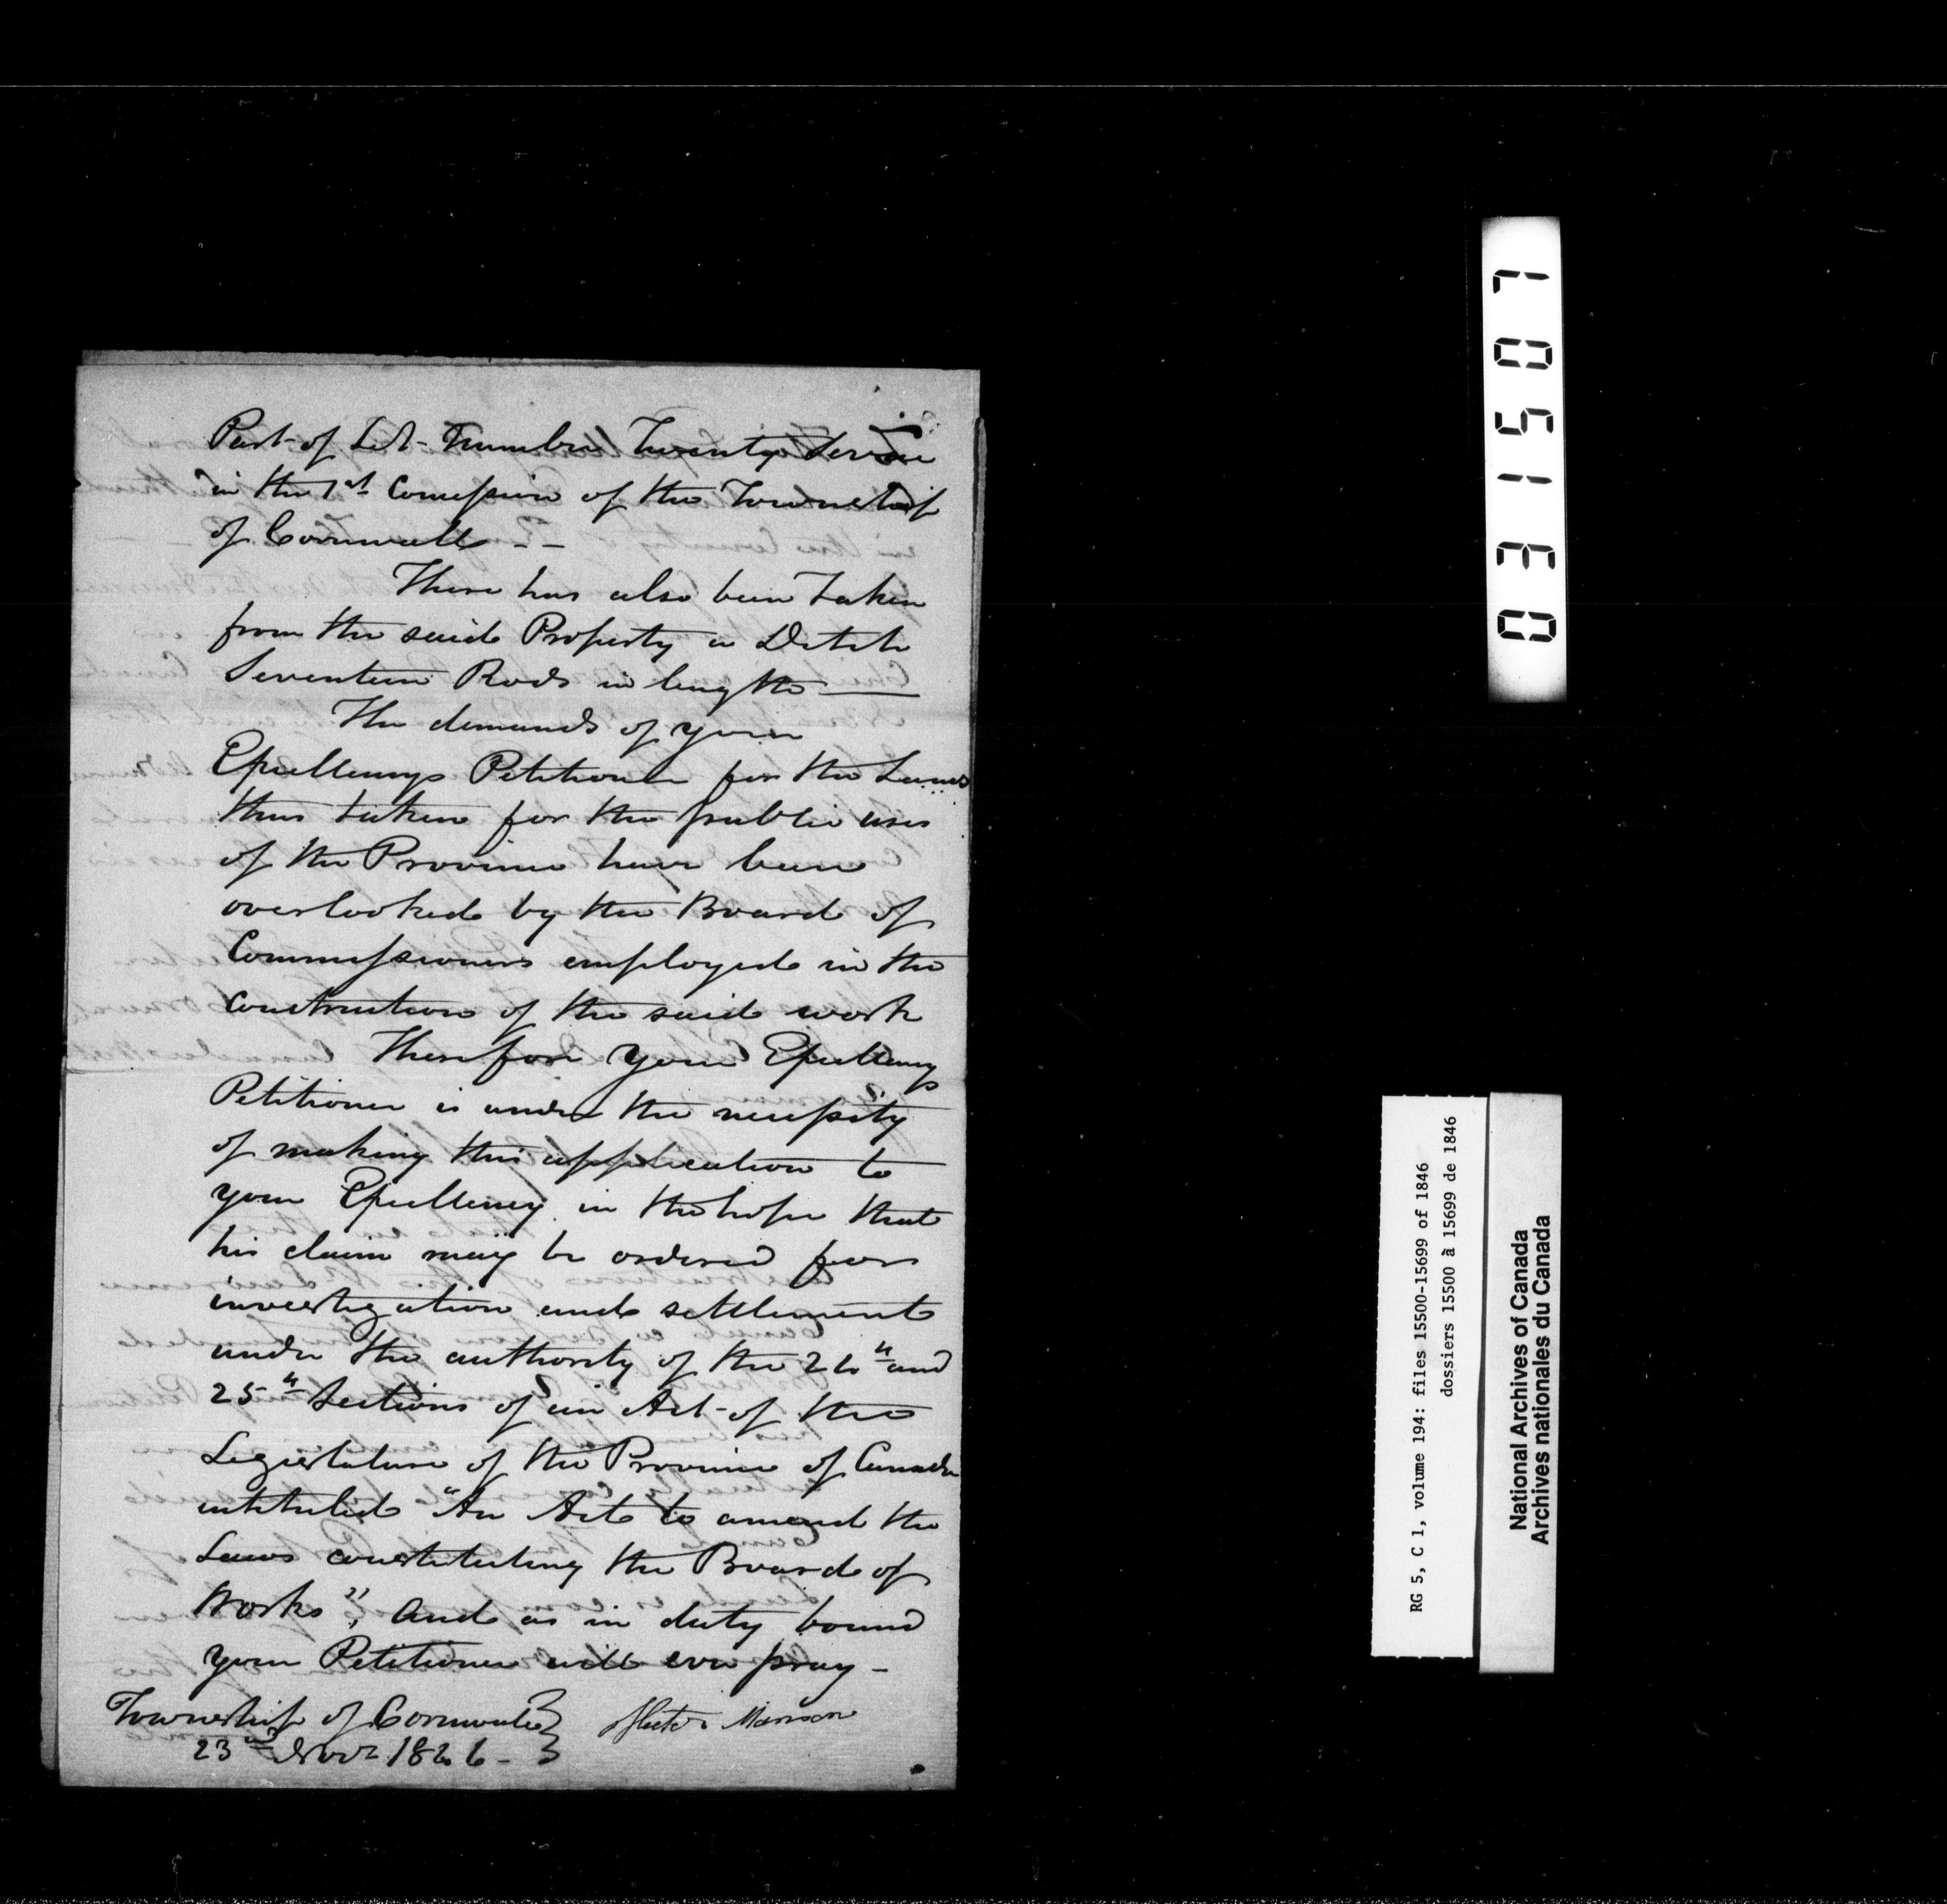 Part of Lot Number Twenty Seven
in the 1st Concession of the Township
of Cornwall --
There has also been taken
from the said Property a Ditch
Seventeen Rods in length —
The demands of your
Excellencys Petitioner for the Lands
thus taken for the public uses
of the Province have been
overlooked by the Board of
Commissioners employed in the
construction of the said work
Therefore your Excellencys
Petitioner is under the necessity
of making this application to
your Excellency in the hope that
his claim may be ordered for
investigation and settlement
under the authority of the 24th and
25th Sections of an Act of the
Legislature of the Province of Canada
intituled "An Act to amend the
Laws constituting the Board of
Works", and as in duty bound
your Petitioner will ever pray -
Township of Cornwall } Hector Manson
23rd Novr 1846 - }
031507
RG 5, C 1, volume 194: files 15500-15699 of 1846
dossiers 15500 à 15699 de 1846
National Archives of Canada
Archives nationales du Canada